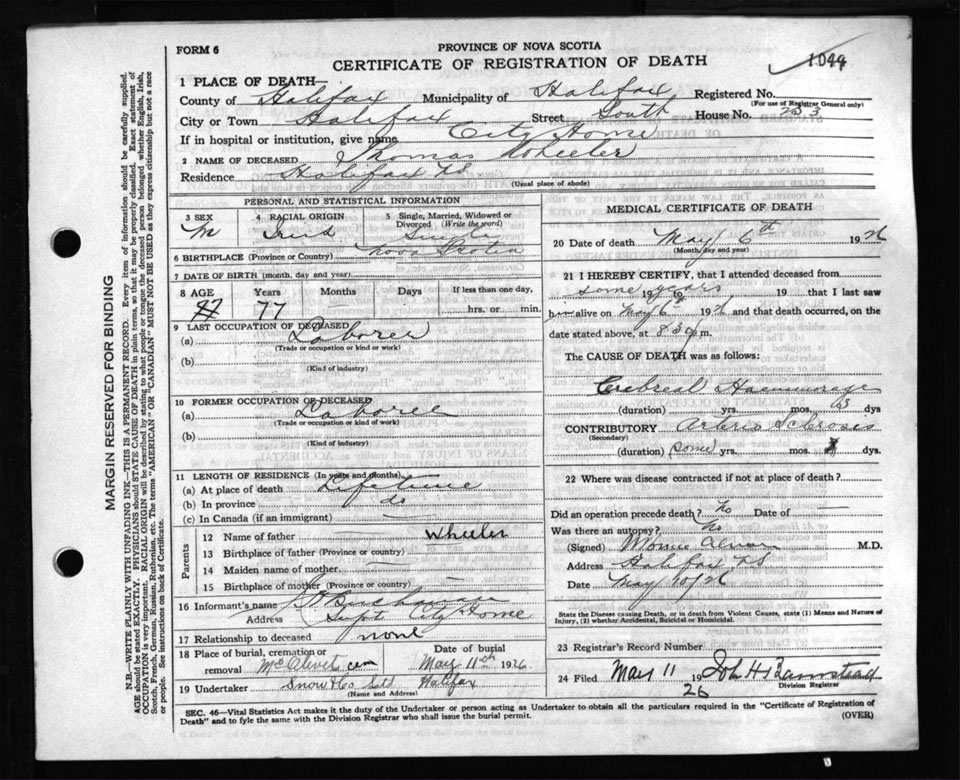 FORM 6
PROVINCE OF NOVA SCOTIA
CERTIFICATE OF REGISTRATION OF DEATH
1044
1 PLACE OF DEATH—
County of Halifax Municipality of Halifax Registered No.
(For use of Registrar General only)
City or Town Halifax Street South House No. 233
If in hospital or institution, give name City Home
2 NAME OF DECEASED Thomas Wheeler
Residence Halifax NS
(Usual place of abode)
PERSONAL AND STATISTICAL INFORMATION
3 SEX 4 RACIAL ORIGIN 5 Single, Married, Widowed or Divorced (Write the word)
M Irish Single
6 BIRTHPLACE (Province or Country) Nova Scotia
7 DATE OF BIRTH (month, day and year)
8 AGE Years Months Days If less than one day,
77 hrs. or min.
9 LAST OCCUPATION OF DECEASED
(a) Laborer
(Trade or occupation or kind or work)
(b)
(Kind of industry)
10 FORMER OCCUPATION OF DECEASED
(a) Laborer
(Trade or occupation or kind or work)
(b)
(Kind of industry)
11 LENGTH OF RESIDENCE (In years and months)
(a) At place of death Life time
(b) In province do
(c) In Canada (if an immigrant) —
Parents
12 Name of father — Wheeler
13 Birthplace of father (Province or country) —
14 Maiden name of mother —
15 Birthplace of mother (Province or country) —
16 Informant's name
Address Supt City Home
17 Relationship to deceased none
18 Place of burial, cremation or removal Date of burial
cem May 11th 1926
19 Undertaker Snow & Co Ltd Halifax
(Name and Address)
MEDICAL CERTIFICATE OF DEATH
20 Date of death May 6th 1926
(Month, day and year)
21 I HEREBY CERTIFY, that I attended deceased from
some years 19 to 19 that I last saw
h alive on May 6th 1926 and that death occurred, on the
date stated above, at 830 p.m.
The CAUSE OF DEATH was as follows:
Crebreal Haemmorage
(duration) yrs. mos. 3 dys
CONTRIBUTORY Arterio Sclerosis
(Secondary)
(duration) some yrs. mos. dys.
22 Where was disease contracted if not at place of death?
Did an operation precede death? No Date of —
Was there an autopsy? No
(Signed) M.D.
Address Halifax NS
Date May 10/26
State the Disease causing Death, or in death from Violent Causes, state (1) Means and Nature of Injury, (2) whether Accidental, Suicidal or Homicidal.
23 Registrar's Record Number
24 Filed May 11 1926 John H
Division Registrar
SEC. 46—Vital Statistics Act makes it the duty of the Undertaker or person acting as Undertaker to obtain all the particulars required in the "Certificate of Registration of
Death" and to fyle the same with the Division Registrar who shall issue the burial permit. (OVER)
MARGIN RESERVED FOR BINDING
N.B.—WRITE PLAINLY WITH UNFADING INK—THIS IS A PERMANENT RECORD. Every item of information should be carefully supplied.
AGE should be stated EXACTLY. PHYSICIANS should STATE CAUSE OF DEATH in plain terms, so that it may be properly classified. Exact statement of
OCCUPATION is very important. RACIAL ORIGIN will be described by stating to what people or tongue the deceased person belonged whether English, Irish,
Scotch, French, German, Russian, Ruthenian, etc. The terms "AMERICAN" or "CANADIAN" MUST NOT BE USED as they express citizenship but not a race
or people. See instructions on back of Certificate.